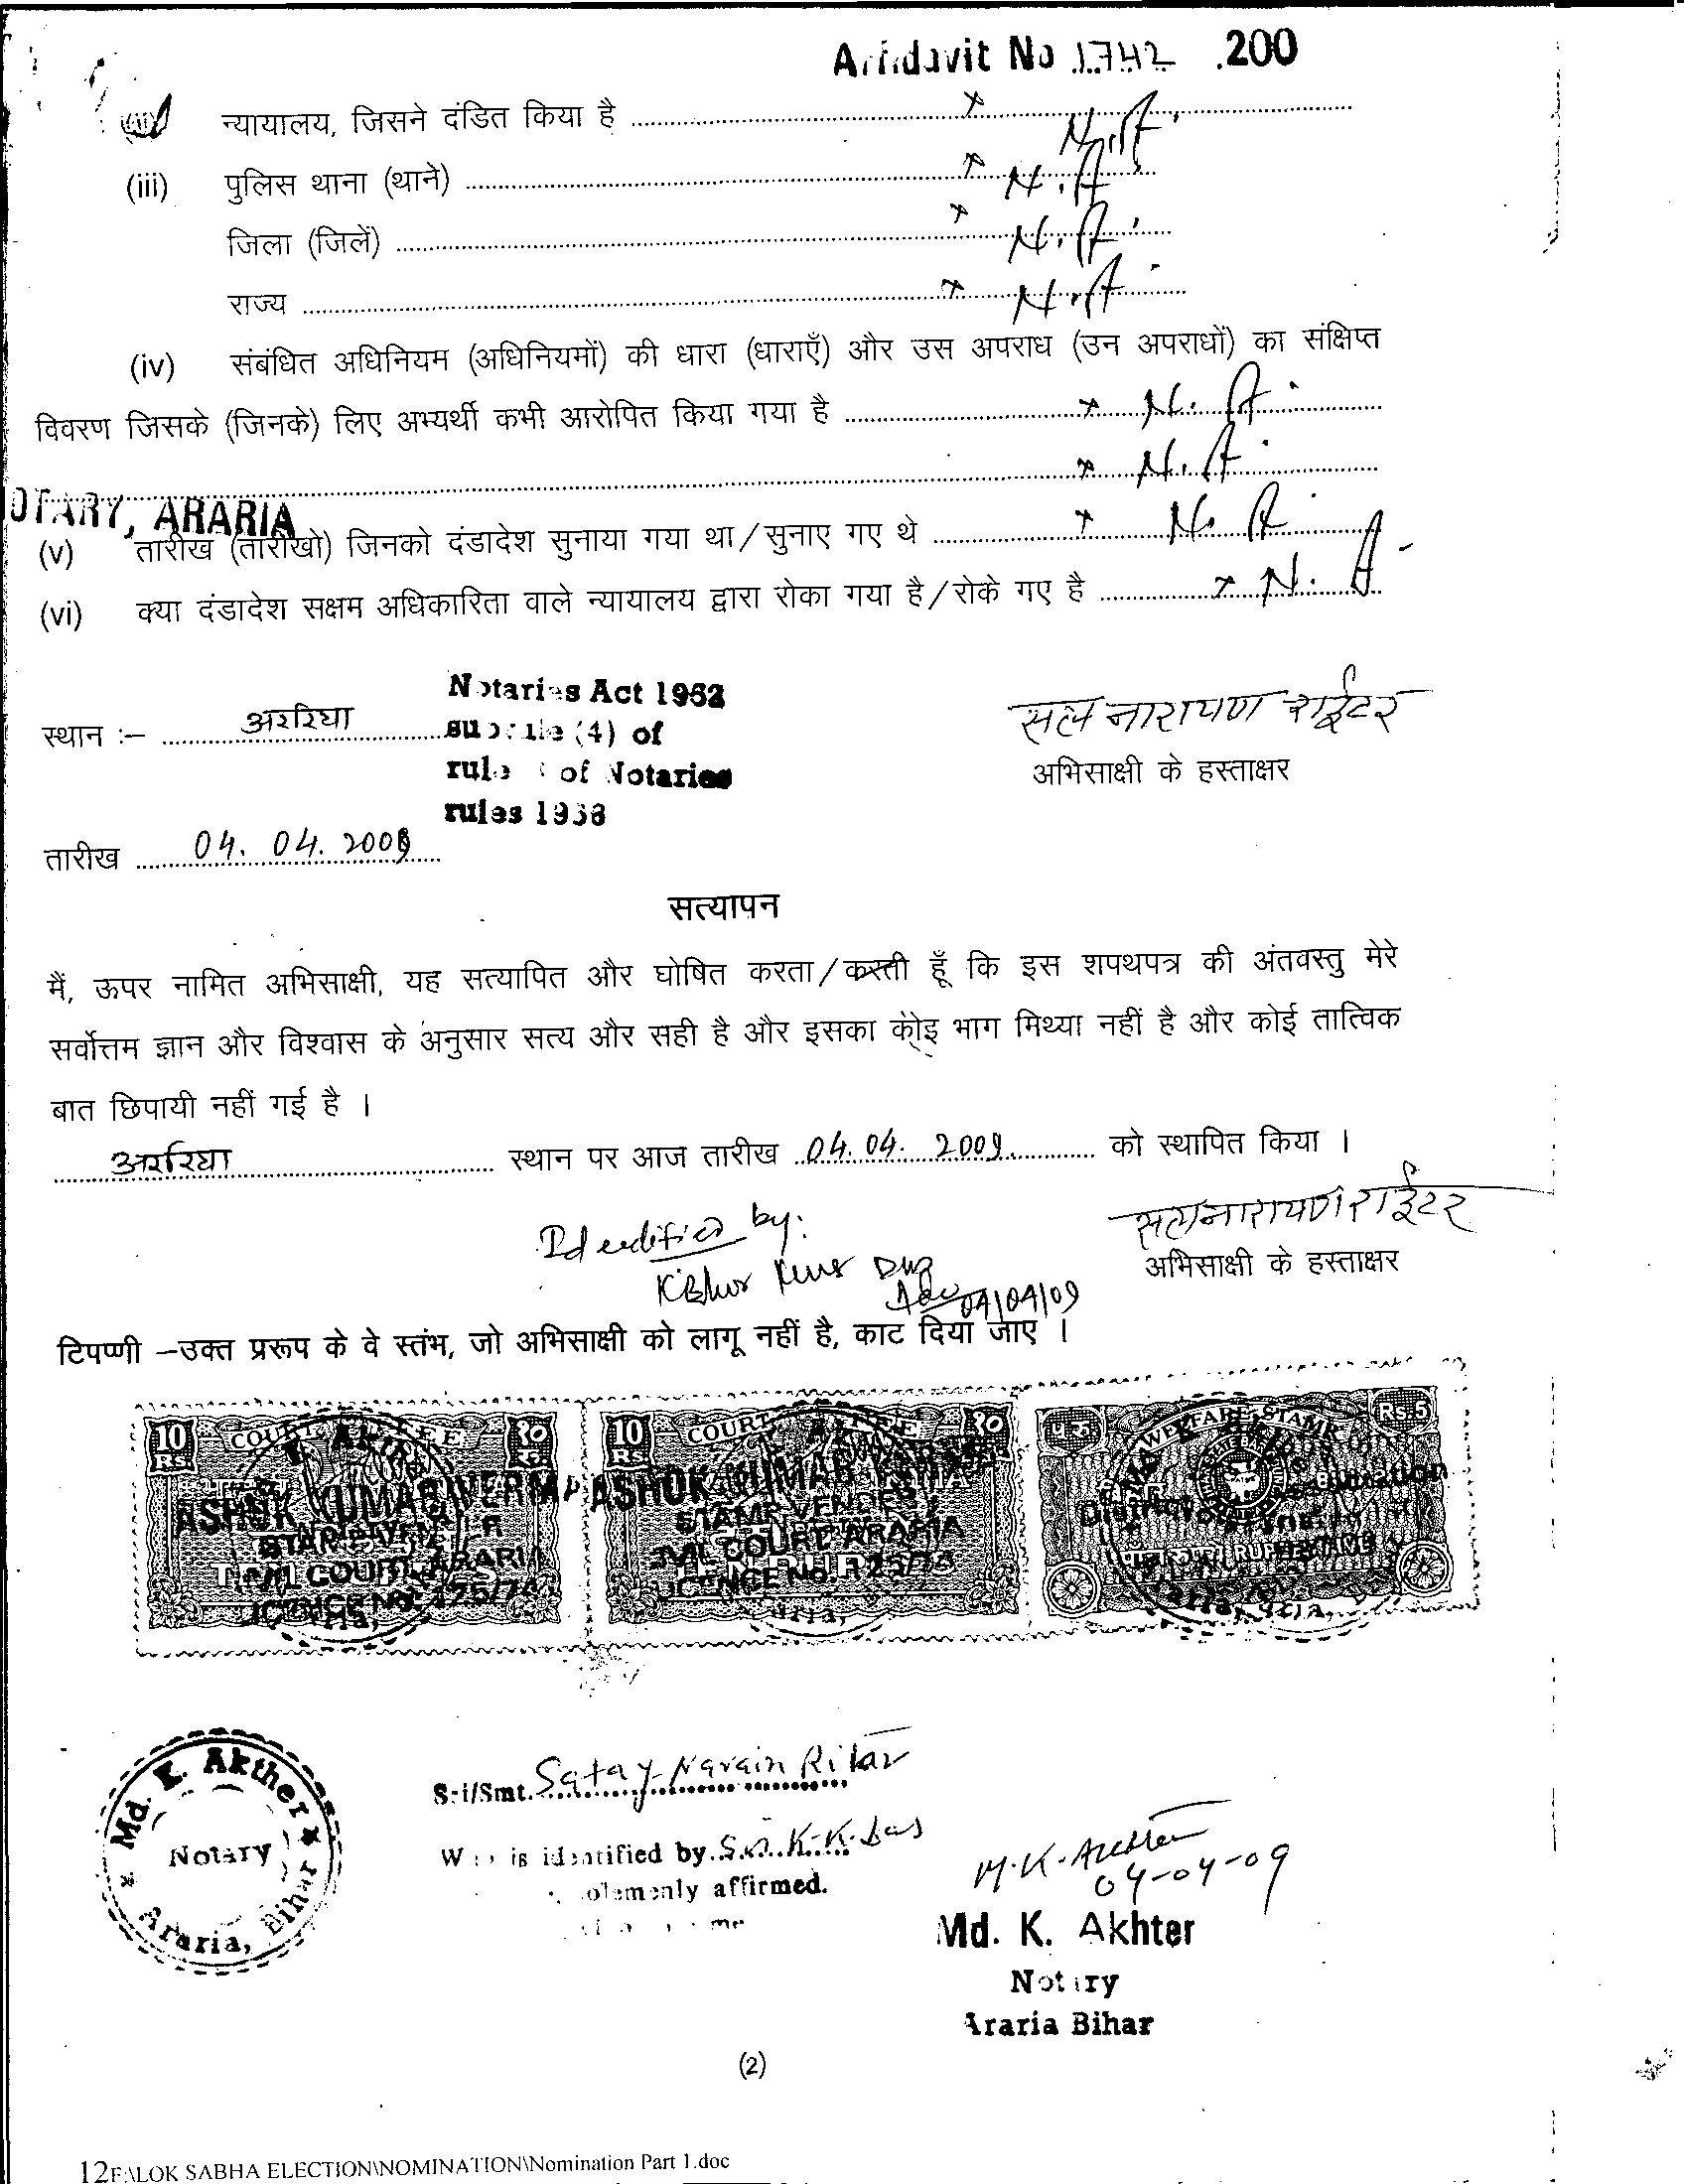 Affidavit No 1742 .200
न्यायालय, जिसने दंडित किया है × N.A.
(iii) पुलिस थाना (थाने) × N.A.
जिला (जिलें) × N.A.
राज्य × N.A.
(iv) संबंधित अधिनियम (अधिनियमों) की धारा (धाराएँ) और उस अपराध (उन अपराधों) का संक्षिप्त
विवरण जिसके (जिनके) लिए अभ्यर्थी कभी आरोपित किया गया है × N.A.
× N.A.
OTARY, ARARIA
(v) तारीख (तारीखो) जिनको दंडादेश सुनाया गया था/सुनाए गए थे × N.A.
(vi) क्या दंडादेश सक्षम अधिकारिता वाले न्यायालय द्वारा रोका गया है/रोके गए है × N.A.
Notaries Act 1952
स्थान :– अररिया
sub rule (4) of
सत्य नारायण राईटर
rule of Notaries
अभिसाक्षी के हस्ताक्षर
rules 1956
तारीख 04. 04. 2009
सत्यापन
मैं, ऊपर नामित अभिसाक्षी, यह सत्यापित और घोषित करता/करती हूँ कि इस शपथपत्र की अंतवस्तु मेरे
सर्वोत्तम ज्ञान और विश्वास के अनुसार सत्य और सही है और इसका कोइ भाग मिथ्या नहीं है और कोई तात्विक
बात छिपायी नहीं गई है ।
अररिया स्थान पर आज तारीख 04. 04. 2009. को स्थापित किया ।
Identified by:
सत्यनारायण राईटर
अभिसाक्षी के हस्ताक्षर
Adv 04/04/09
टिपप्णी –उक्त प्ररूप के वे स्तंभ, जो अभिसाक्षी को लागू नहीं है, काट दिया जाए ।
10 Rs. COURT FEE १० रु.
10 Rs. COURT FEE १०
५ रु. WELFARE STAMP RS.5
ASHOK KUMAR VERMA
STAMP VENDER
CIVIL COURT ARARIA
ASHOK KUMAR VERMA
STAMP VENDER
CIVIL COURT ARARIA
LICENCE No. 25/73
Md. K. Akther
Notary
Araria, Bihar
Sri/Smt. Satay Narain Ritar
Who is identified by Sri K.K. Das
solemenly affirmed.
me
M.K. Akhter
04-04-09
Md. K. Akhter
Notary
Araria Bihar
(2)
12F:\LOK SABHA ELECTION\NOMINATION\Nomination Part 1.doc